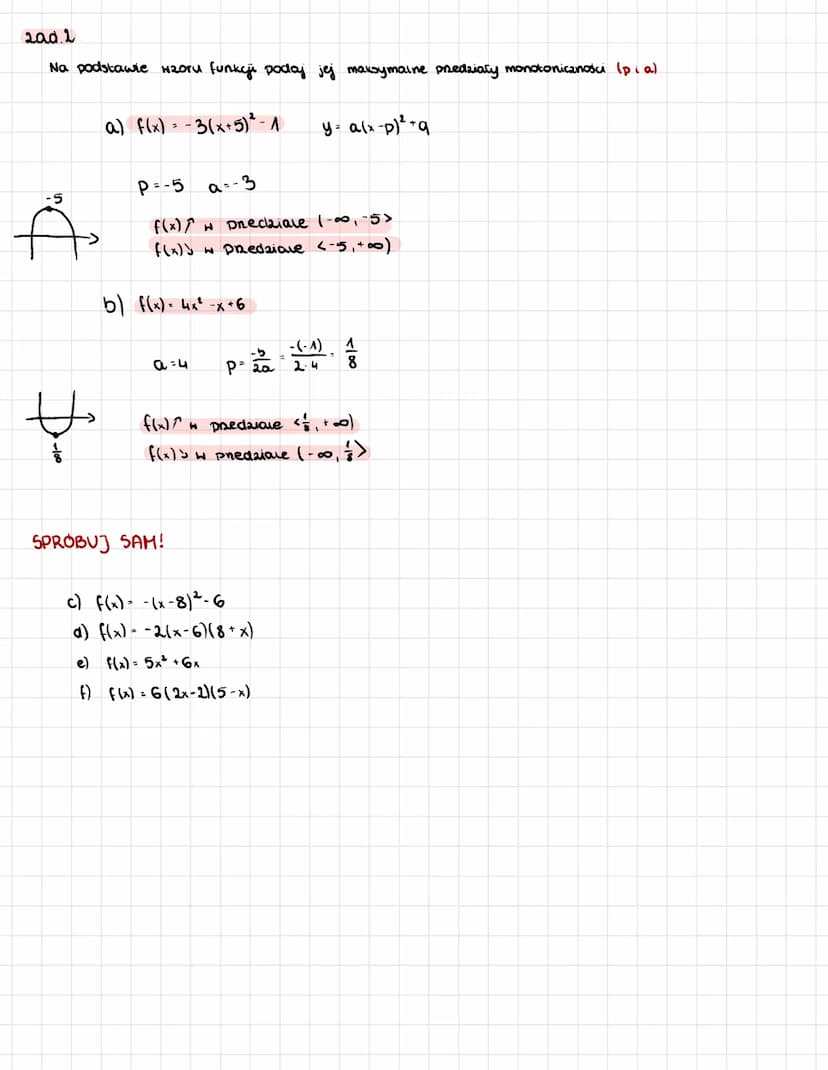 zad.2
Na podstawie wzoru funkcji podaj jej maksymalne przedziały monotoniczności (p i a)
a) f(x) = -3(x+5)² - 1 y = a(x-p)² + q
p = -5 a = -3
-5
f(x)↗ w przedziale (-∞, -5>
f(x)↘ w przedziale <-5, +∞)
b) f(x) = 4x² - x + 6
a = 4 p = -b/2a = -(-1)/2·4 = 1/8
f(x)↗ w przedziale <1/8, +∞)
1/8
f(x)↘ w przedziale (-∞, 1/8>
SPRÓBUJ SAM!
c) f(x) = -(x-8)² - 6
d) f(x) = -2(x-6)(8+x)
e) f(x) = 5x² + 6x
f) f(x) = 6(2x-2)(5-x)